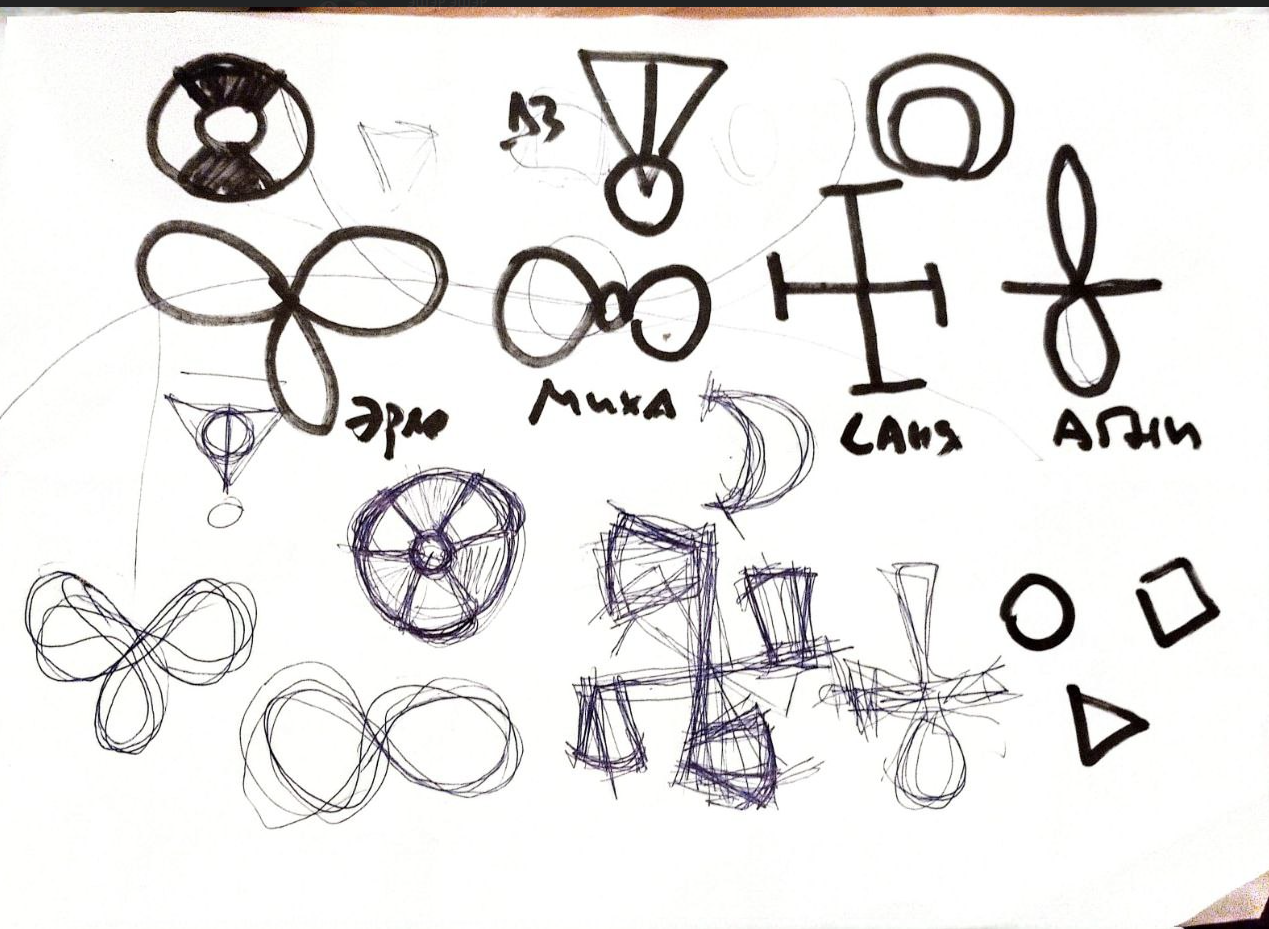 ДЗ
Эрло
Миха
САня
АГни